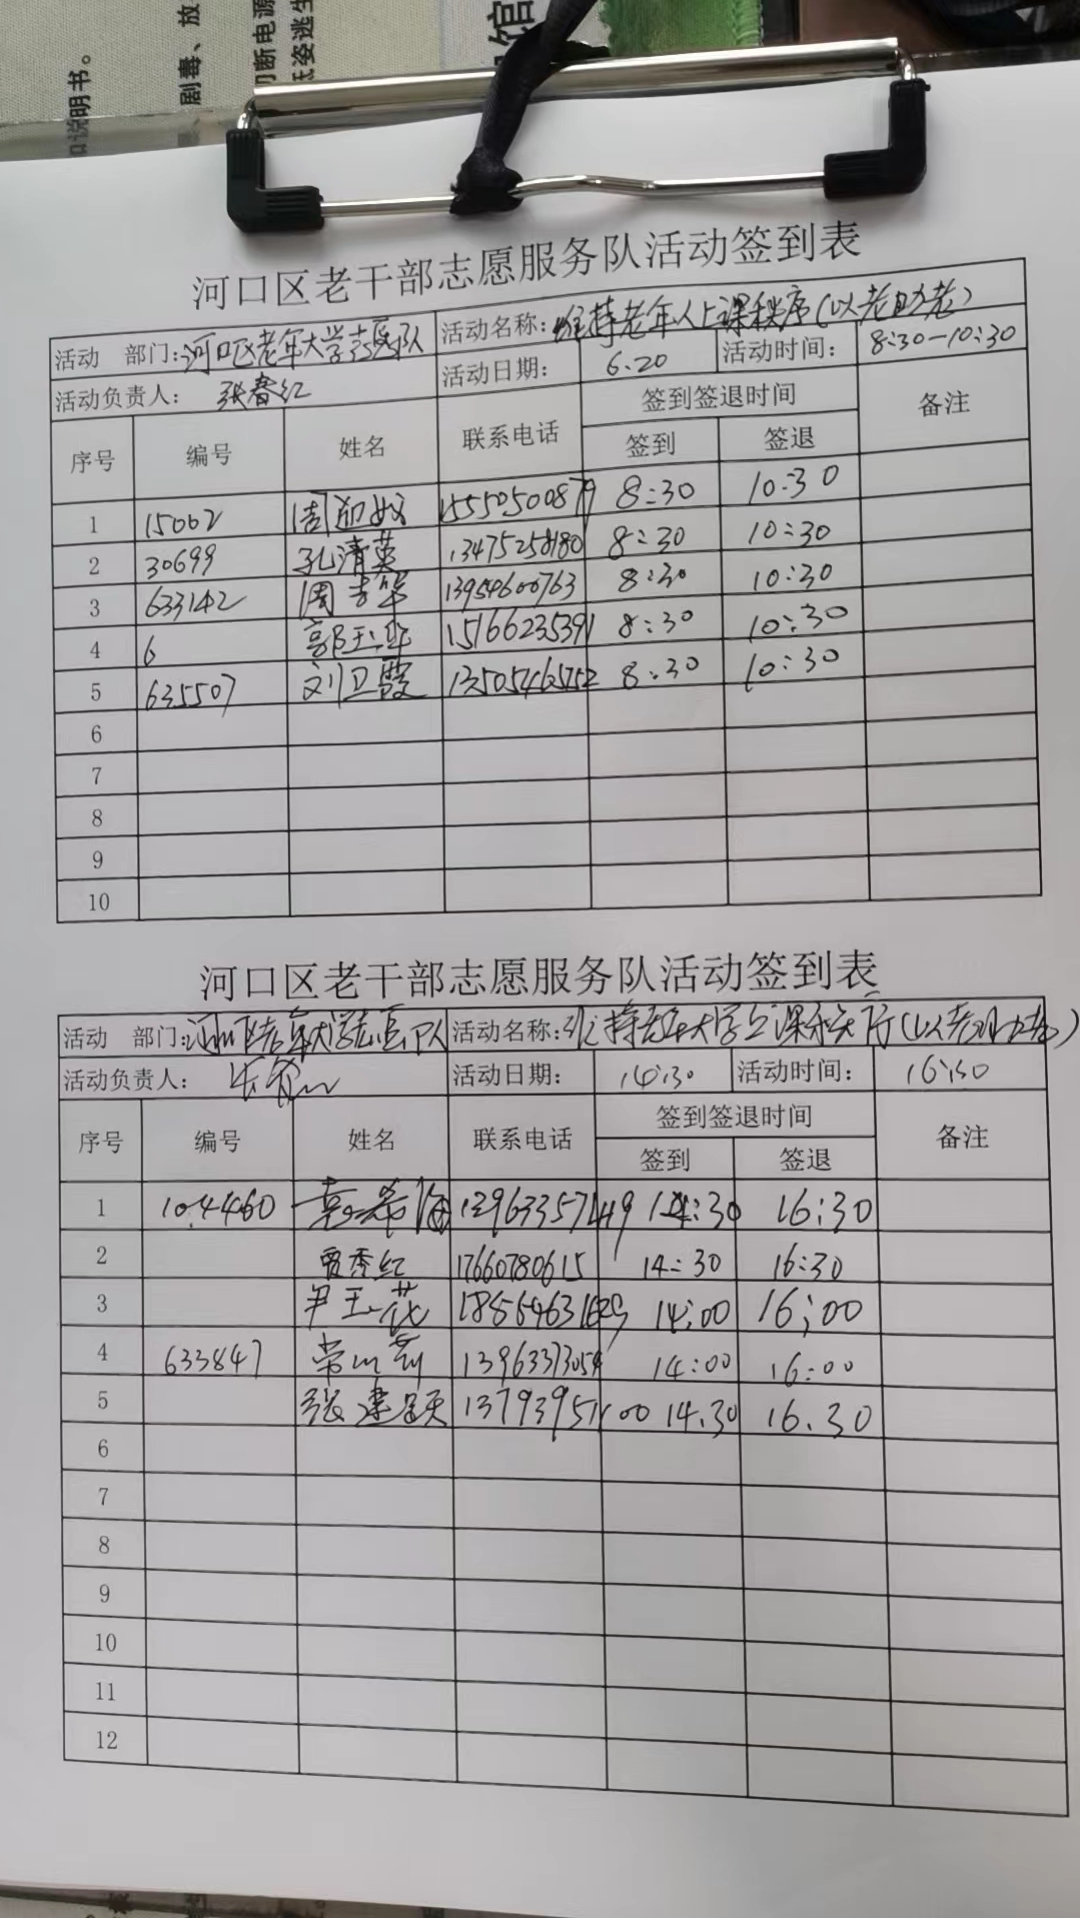 如说明书。
剧毒、放
切断电源
低姿逃生
馆
河口区老干部志愿服务队活动签到表
活动 部门:河口区老年大学志愿队 活动名称:维持老年人上课秩序(以老助老)
活动负责人: 张春红 活动日期: 6.20 活动时间: 8:30-10:30
序号 编号 姓名 联系电话 签到签退时间 备注
签到 签退
1 15002 周 15550500879 8:30 10:30
2 30699 孔清英 13475258180 8:30 10:30
3 633142 周 华 13954600763 8:30 10:30
4 6 郭玉华 15166235391 8:30 10:30
5 635507 刘卫霞 13505465752 8:30 10:30
6
7
8
9
10
河口区老干部志愿服务队活动签到表
活动 部门:河口区老年大学志愿队 活动名称: 持老年大学上课秩序(以老助老)
活动负责人: 活动日期: 14:30 活动时间: 16:30
序号 编号 姓名 联系电话 签到签退时间 备注
签到 签退
1 104460 希海 14:30 16:30
2 曾秀红 17660780615 14:30 16:30
3 尹玉花 14:00 16:00
4 633847 13963373054 14:00 16:00
5 张建 14.30 16.30
6
7
8
9
10
11
12